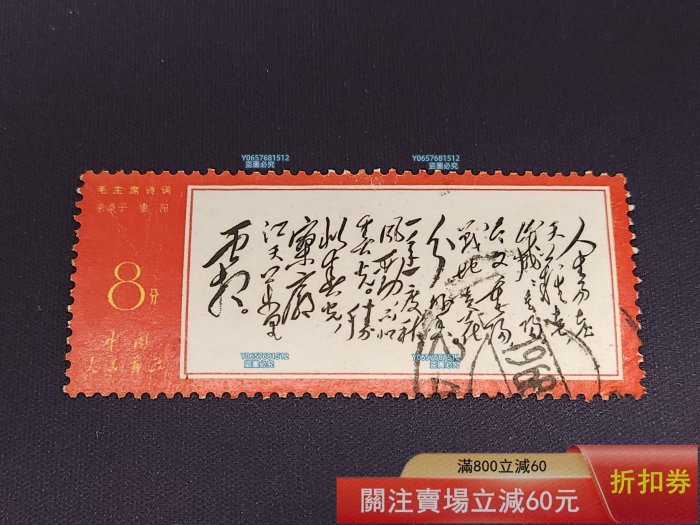 Y0657681512
盜圖必究
Y0657681512
盜圖必究
毛主席诗词
采桑子 重阳
8分
中国
人民邮政
人生易老
天难老
岁岁重阳
今又重阳
战地黄花
分外香
一年一度秋
风劲不似
春光。胜
似春光
寥廓
江天万里
霜。
Y0657681512
盜圖必究
Y0657681512
盜圖必究
滿800立減60
關注賣場立減60元
折扣券